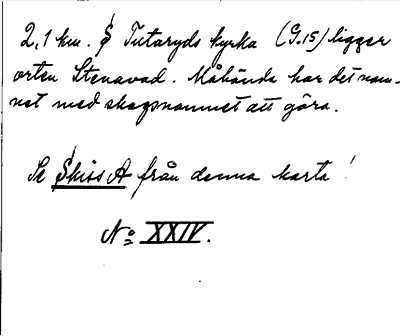 2,1 km. S Tutaryds kyrka (G.15) ligger
orten Stenavad. Måhända har det nam-
net med skogsnamnet att göra.
Se Skiss A från denna karta!
No XXIV.